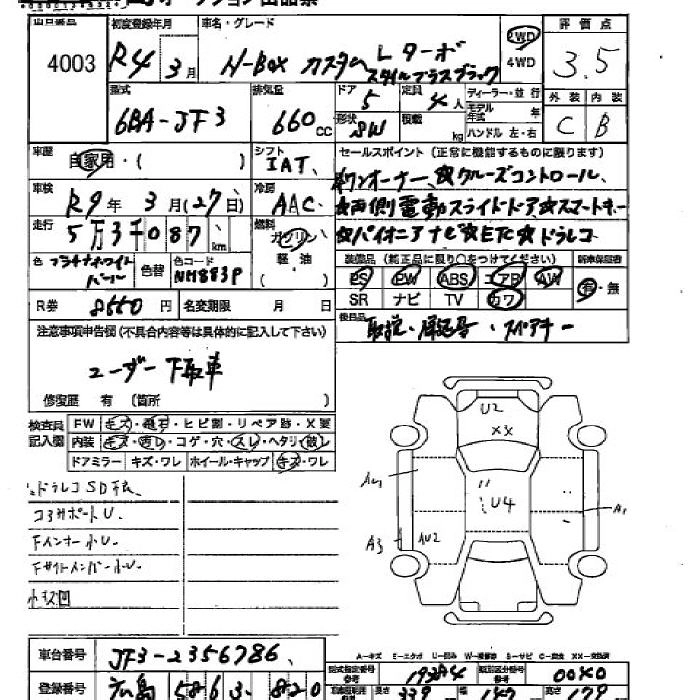 出品番号 初度登録年月 車名・グレード 評価点
4003 R4年3月 N-BOX カスタム L ターボ スタイルプラスブラック 2WD 4WD 3.5
型式 排気量 ドア 定員 ディーラー・並行 外装 内装
6BA-JF3 660cc 5 4人 モデル年式 年 C B
形状 SW 積載 kg ハンドル 左・右
車歴 自家用・( ) シフト IAT セールスポイント(正常に機能するものに限ります)
車検 R9年3月(27日) 冷房 AAC ☆ワンオーナー、☆クルーズコントロール、
☆両側電動スライドドア☆スマートキー
走行 5万3千087km 燃料 ガソリン 軽油 ( ) ☆パイオニアナビ☆ETC☆ドラレコ
色 プラチナホワイトパール 色替 色コード NH883P 装備品(純正品に限り○をつけてください) 新車保証書
PS PW ABS エアB AW 有・無
R券 8660円 名変期限 月 日 SR ナビ TV カワ
注意事項申告欄(不具合内容等は具体的に記入して下さい) 後日品 取説・保証書・スペアキー
ユーザー下取車
修復歴 有 (箇所 )
検査員記入欄 FW キズ・飛石・ヒビ割・リペア跡・X要
内装 キズ・汚レ・コゲ・穴・スレ・ヘタリ・破レ
ドアミラー キズ・ワレ ホイール・キャップ キズ・ワレ
U2
XX
U4
A1
A3
U2
A1
ドラレコSD欠
コアサポートU.
FインナーサU.
小キズ凹
A-キズ E-エクボ U-凹み W-補修跡 S-サビ C-腐食 XX-交換済
車台番号 JF3-2356786 型式指定番号 参考 類別区分番号 参考 0040
登録番号 広島 586 す 820 長さ 339 幅 147 高さ 179